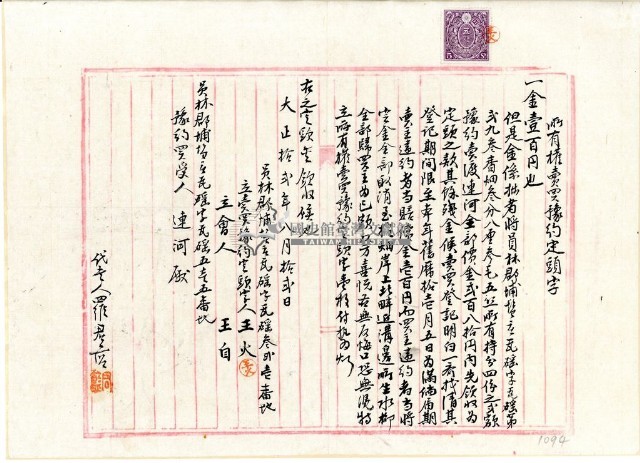 所有權賣買豫約定頭字
一金壹百円也
但是金係拙者將員林郡埔鹽庄瓦磘字瓦磘第
貳九叁番畑叁分八厘叁毛五糸所有持分四份之貳額
豫約賣渡連河全部價金貳百八拾円內先領收為
定頭之款其餘殘金候賣買登記明白一齊找清其
登記期間限至本年舊曆拾壹月五日為滿倘届期
賣主違約者當賠償金壹百円而買主違約者當將
定金全部取消至
全部歸買主
立所有權賣買豫約定頭字壹紙付執為炤
右之定頭金領收候也
大正拾貳年八月拾貳日
員林郡埔鹽庄瓦磘字瓦磘叁貳壱番地
立賣買豫約定頭字人 王火
立會人 王自
員林郡埔鹽庄瓦磘字瓦磘五五番地
豫約買受人 連河 殿
代書人 羅
國史館臺灣文獻館
TAIWAN HISTORICA
1094